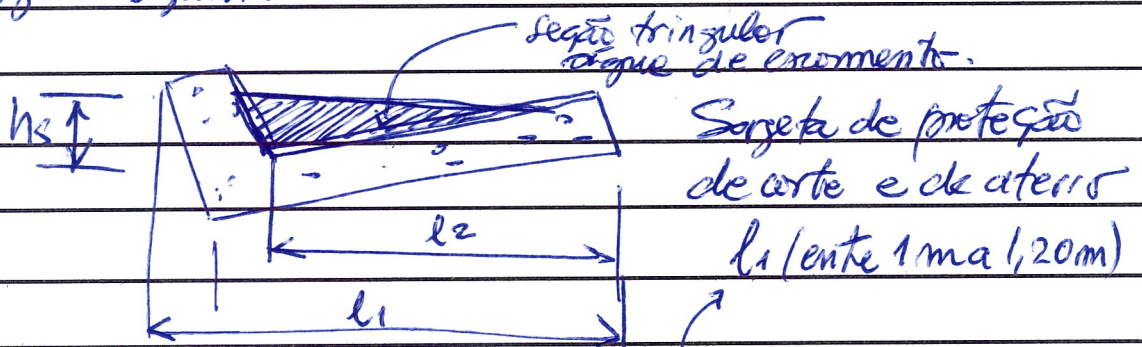 seção tringulor
água de escoamento.
hs
Sarjeta de proteção
de corte e de aterro
l2
l1 (entre 1 m a 1,20m)
l1